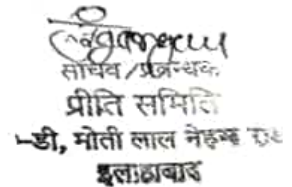 सचिव/प्रबन्धक
प्रीति समिति
-डी, मोती लाल नेहरू रोड
इलाहाबाद